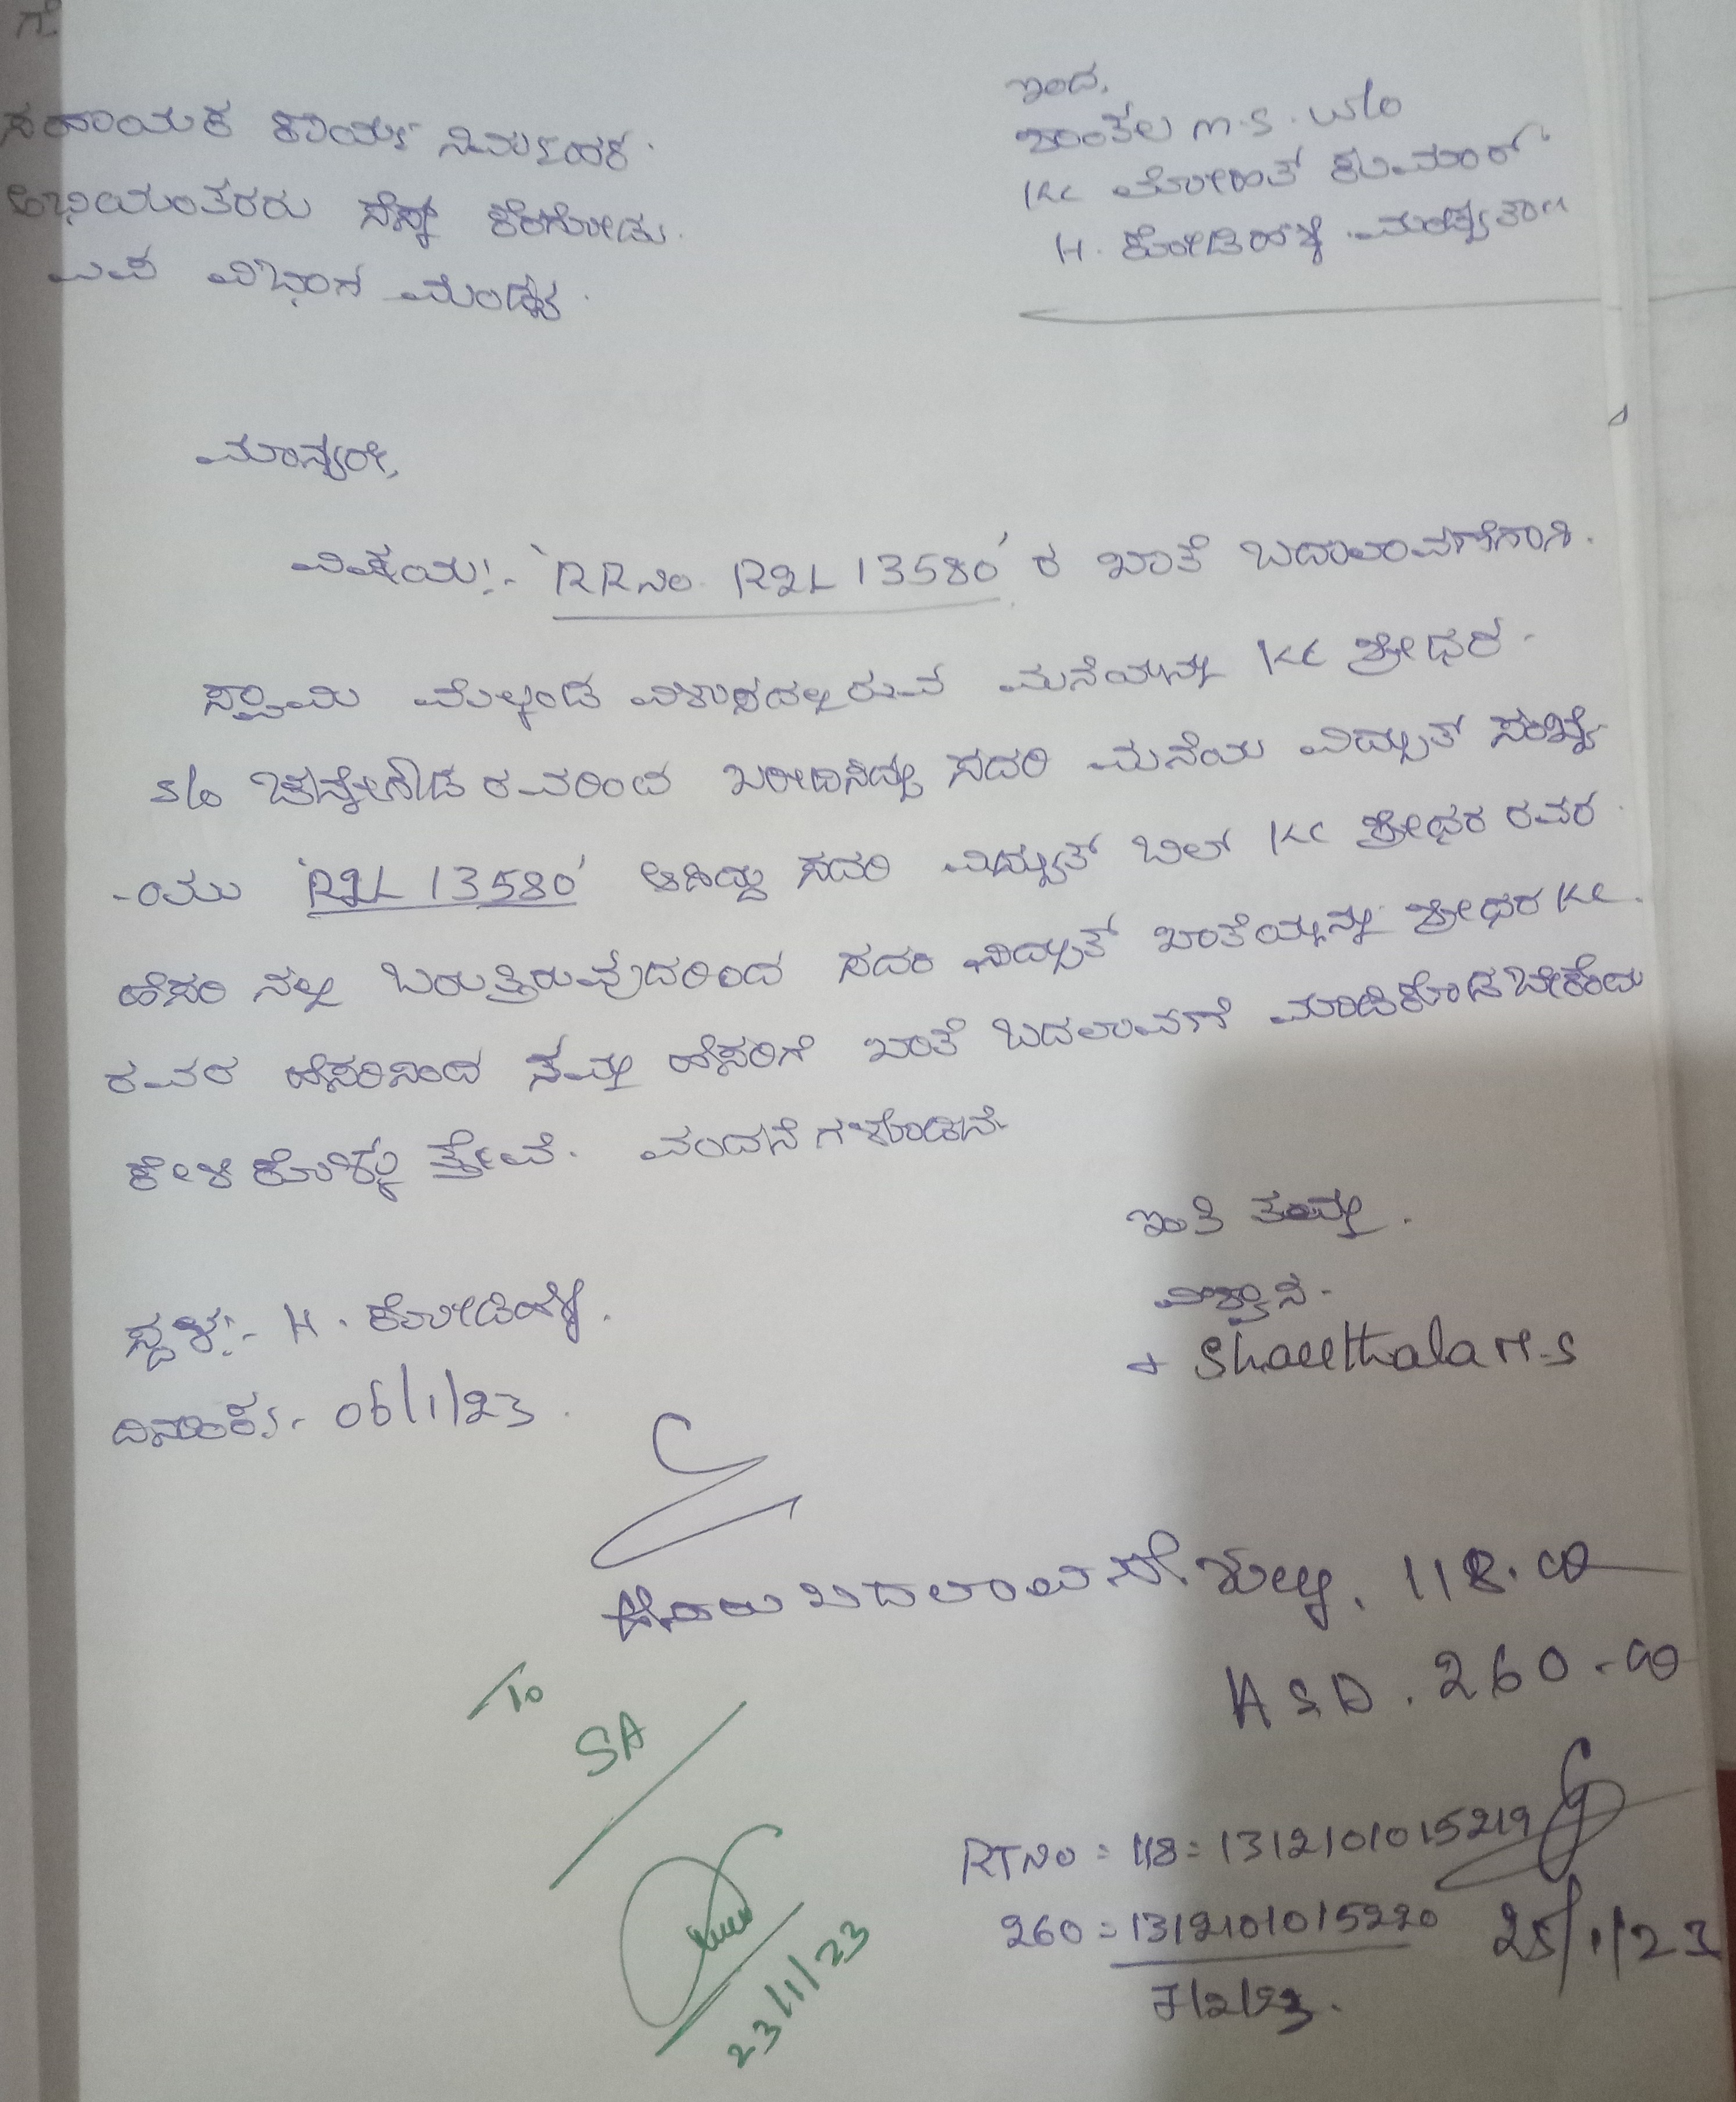 ಗೆ
ಸಹಾಯಕ ಕಾರ್ಯ ನಿರ್ವಾಹಕ
ಅಭಿಯಂತರರು ಸೆಸ್ಕ್ ಕೆರಗೋಡು.
ಉಪ ವಿಭಾಗ ಮಂಡ್ಯ.
ಇಂದ,
ಶಾಂತಲ m.s. w/o
Kc ಮೋಹಿತ್ ಕುಮಾರ್.
H. ಕೋಡಿಹಳ್ಳಿ ಮಂಡ್ಯ ತಾ॥
ಮಾನ್ಯರೇ,
ವಿಷಯ:- 'RR ನಂ R2L 13580' ರ ಖಾತೆ ಬದಲಾವಣೆಗಾಗಿ.
ಸ್ವಾಮಿ ಮೇಲ್ಕಂಡ ವಿಳಾಸದಲ್ಲಿರುವ ಮನೆಯನ್ನು KC ಶ್ರೀಧರ
s/o ಚನ್ನೇಗೌಡ ರವರಿಂದ ಖರೀದಿಸಿದ್ದು ಸದರಿ ಮನೆಯ ವಿದ್ಯುತ್ ಸಂಖ್ಯೆ
-ಯು 'R2L 13580' ಆಗಿದ್ದು ಸದರಿ ವಿದ್ಯುತ್ ಬಿಲ್ KC ಶ್ರೀಧರ ರವರ
ಹೆಸರಿನಲ್ಲಿ ಬರುತ್ತಿರುವುದರಿಂದ ಸದರಿ ವಿದ್ಯುತ್ ಖಾತೆಯನ್ನು ಶ್ರೀಧರ KC
ರವರ ಹೆಸರಿನಿಂದ ನಮ್ಮ ಹೆಸರಿಗೆ ಖಾತೆ ಬದಲಾವಣೆ ಮಾಡಿಕೊಡಬೇಕೆಂದು
ಕೇಳಿಕೊಳ್ಳುತ್ತೇವೆ. ವಂದನೆಗಳೊಡನೆ.
ಇಂತಿ ತಮ್ಮ.
ವಿಶ್ವಾಸಿ.
Shaenthala M.S
ಸ್ಥಳ:- H. ಕೋಡಿಹಳ್ಳಿ.
ದಿನಾಂಕ:- 06/1/23.
ಹೆಸರು ಬದಲಾವಣೆ ಶುಲ್ಕ. 118.00
ASD. 260-00
To
SA
23/1/23
RT ನಂ = 118 = 1312101015219
260 = 1312101015220
25/1/23
7/2/23.